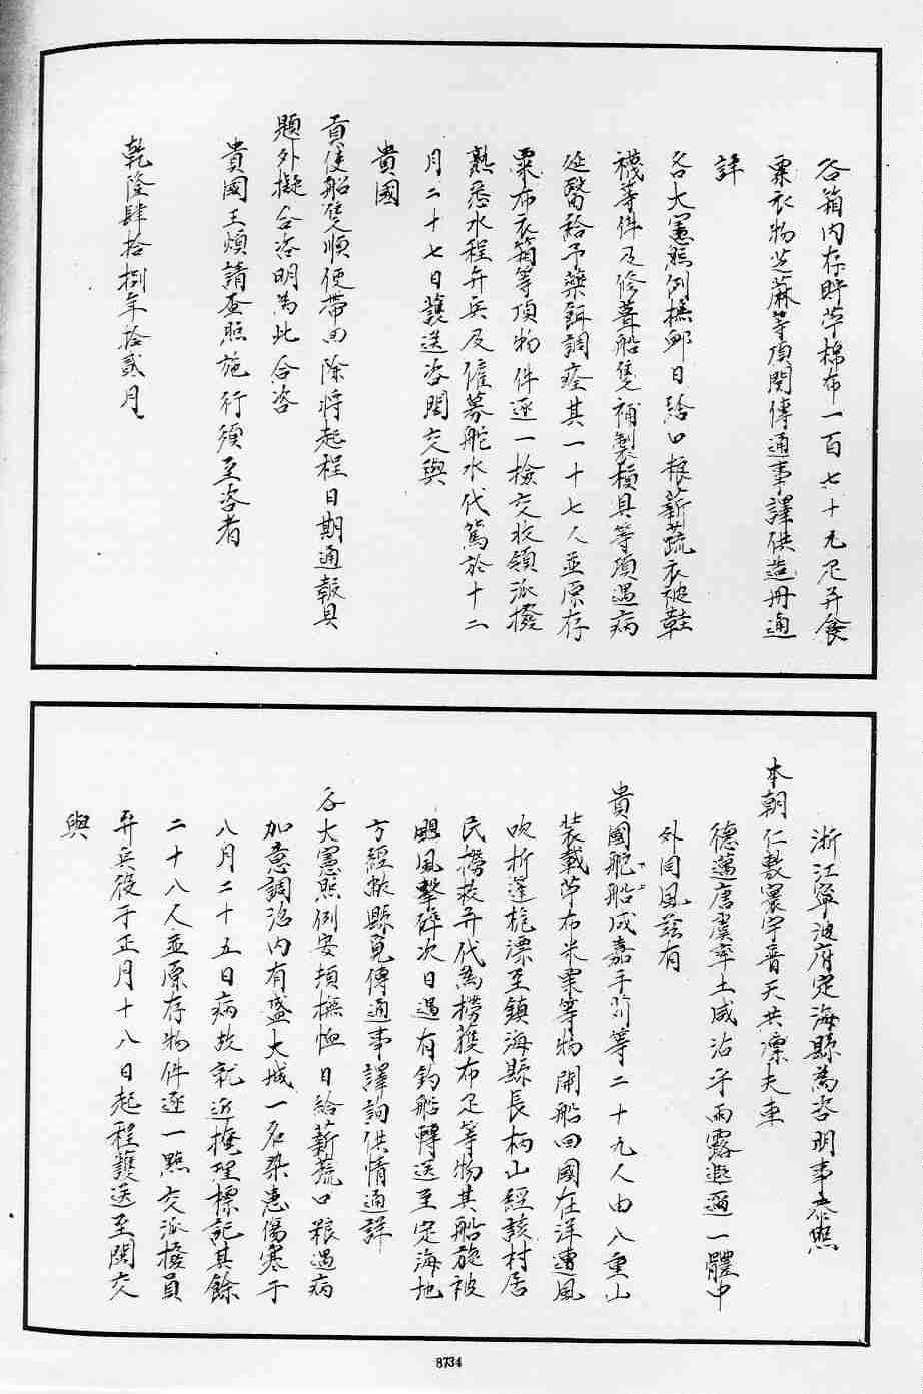 各箱內存時草棉布一百七十九疋并食
粟衣物芝蔴等項関傳通事譯供造冊通
詳
各大憲照例撫卹日給口粮薪蔬衣被鞋
襪等件及修葺船隻補製槓具等項遇病
延醫給予藥餌調痊其一十七人並原存
粟布衣箱等項物件逐一檢交收領派撥
熟悉水程弁兵及僱募舵水代駕於十二
月二十七日護送咨閩交與
貴國
貢使船雙順便帶回除將起程日期通報具
題外擬合咨明為此合咨
貴國王煩請查照施行須至咨者
乾隆肆拾捌年拾貳月
浙江寧波府定海縣為咨明事恭照
本朝仁敷寰宇普天共凛夫車
德邁唐虞率土咸沾乎雨露遐邇一體中
外同風茲有
貴國舵船成嘉手苅等二十九人由八重山
裝載苧布米粟等物開船回國在洋遭風
吹折蓬桅漂至鎮海縣長柄山經該村居
民撈救并代為撈獲布疋等物其船旋被
颶風擊碎次日遇有釣船轉送至定海地
方經敝縣覓傳通事譯詢供情通詳
各大憲照例安頓撫恤日給薪蔬口粮遇病
加意調治內有盛大城一名染患傷寒于
八月二十五日病故就近掩埋標記其餘
二十八人並原存物件逐一點交派撥員
弁兵役于正月十八日起程護送至閩交
與
8734